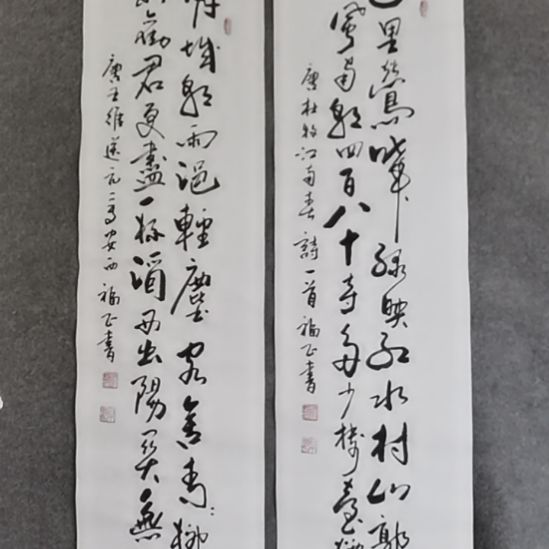 里鶯啼綠映紅水村山郭
風南朝四百八十寺多少樓臺煙
唐杜牧江南春詩一首福正書
城朝雨浥輕塵客舍青々柳
勸君更盡一杯酒西出陽關無
唐王維送元二使安西福正書